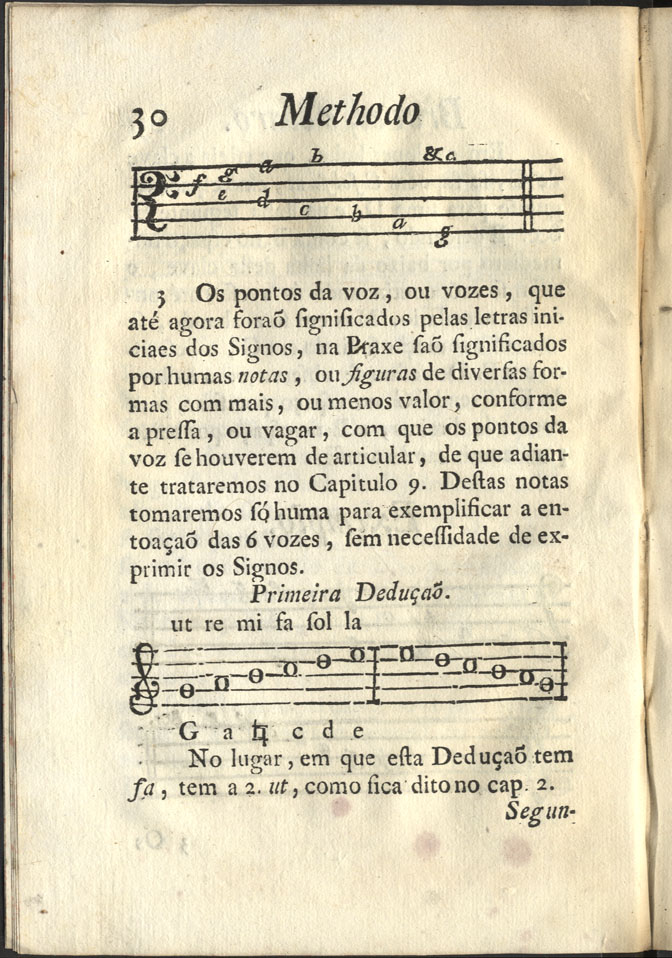 30 Methodo
b &c.
f g a
e d c b a g
3 Os pontos da voz, ou vozes, que
até agora foraõ ſignificados pelas letras ini-
ciaes dos Signos, na Praxe ſaõ ſignificados
por humas notas, ou figuras de diverſas for-
mas com mais, ou menos valor, conforme
a preſſa, ou vagar, com que os pontos da
voz ſe houverem de articular, de que adian-
te trataremos no Capitulo 9. Deſtas notas
tomaremos ſó huma para exemplificar a en-
toaçaõ das 6 vozes, ſem neceſſidade de ex-
primir os Signos.
Primeira Deduçaõ.
ut re mi fa ſol la
G a ♮ c d e
No lugar, em que eſta Deduçaõ tem
fa, tem a 2. ut, como fica dito no cap. 2.
Segun-